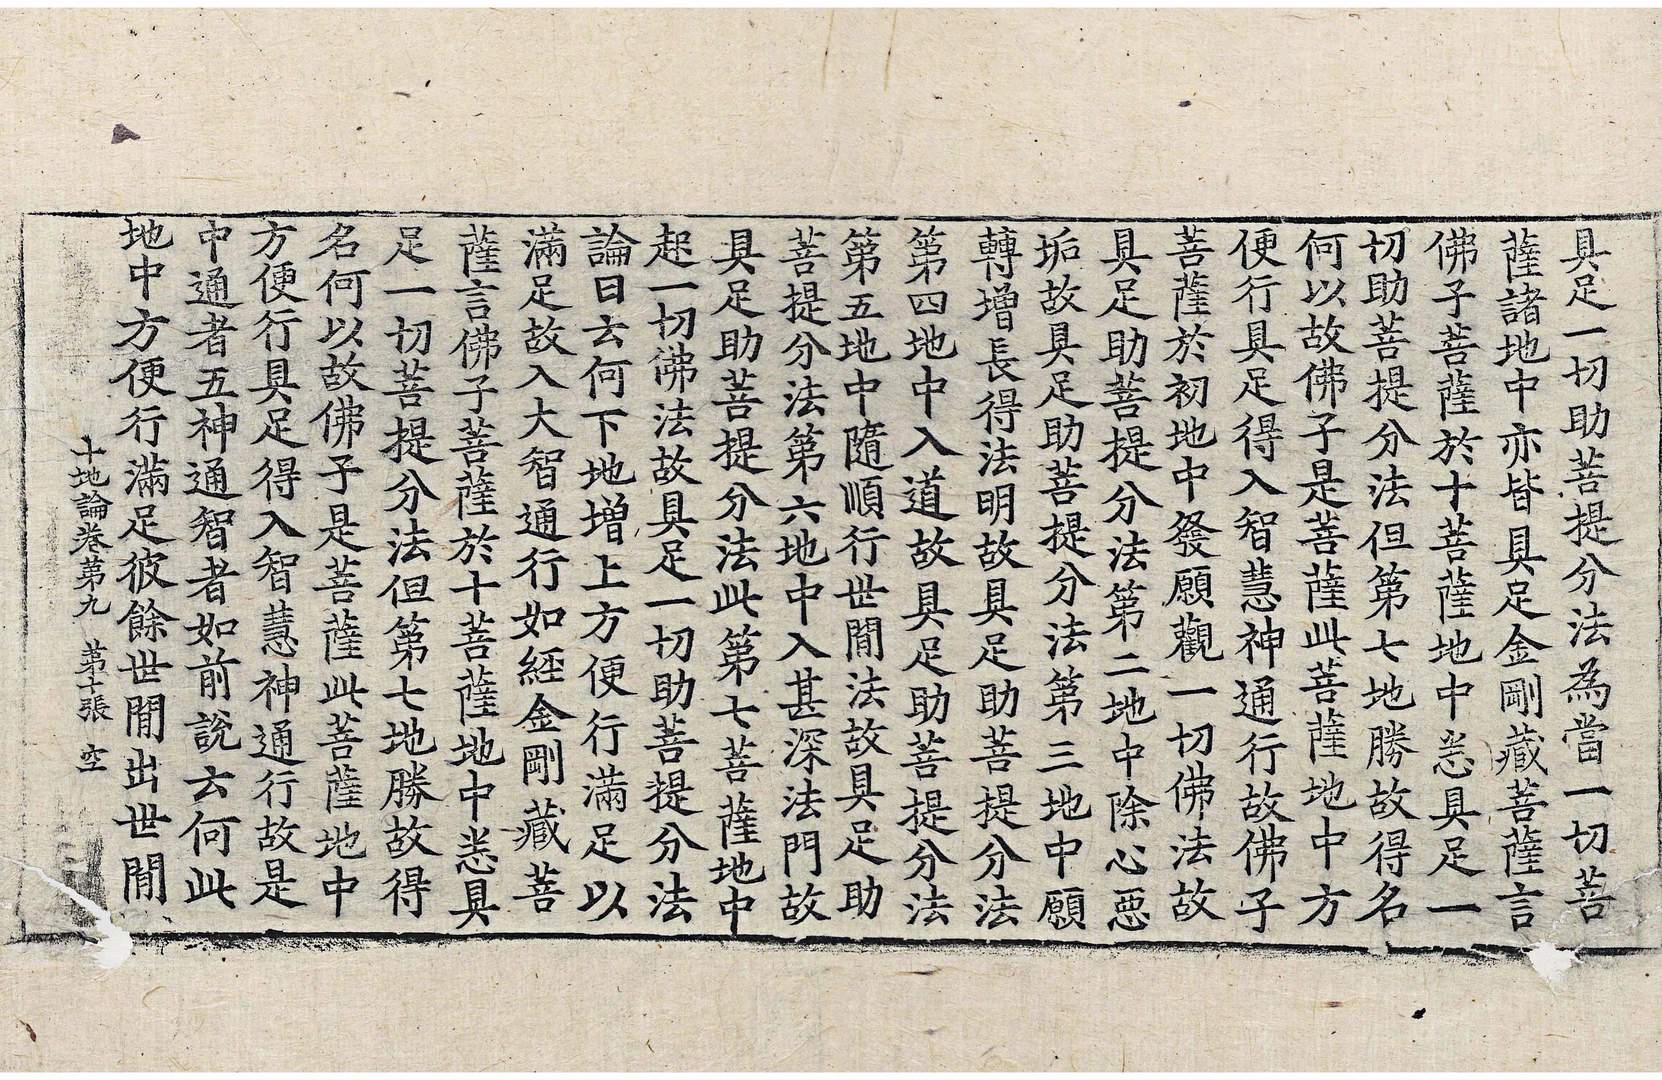 具足一切助菩提分法為當一切菩
薩諸地中亦皆具足金剛藏菩薩言
佛子菩薩於十菩薩地中悉具足一
切助菩提分法但第七地勝故得名
何以故佛子是菩薩此菩薩地中方
便行具足得入智慧神通行故佛子
菩薩於初地中發願觀一切佛法故
具足助菩提分法第二地中除心惡
垢故具足助菩提分法第三地中願
轉增長得法明故具足助菩提分法
第四地中入道故具足助菩提分法
第五地中隨順行世間法故具足助
菩提分法第六地中入甚深法門故
具足助菩提分法此第七菩薩地中
起一切佛法故具足一切助菩提分法
論曰云何下地增上方便行滿足以
滿足故入大智通行如經金剛藏菩
薩言佛子菩薩於十菩薩地中悉具
足一切菩提分法但第七地勝故得
名何以故佛子是菩薩此菩薩地中
方便行具足得入智慧神通行故是
中通者五神通智者如前說云何此
地中方便行滿足彼餘世間出世間
十地論卷第九　第十張　空